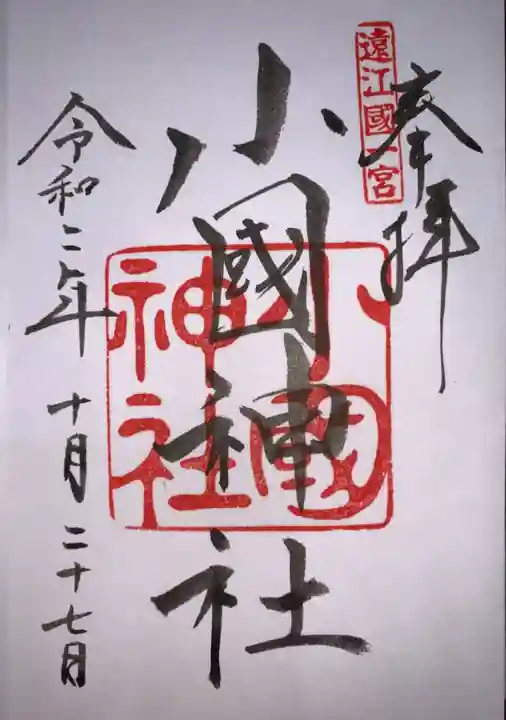 奉拝
遠江國一宮
小國神社
小國神社
令和二年 十月 二十七日